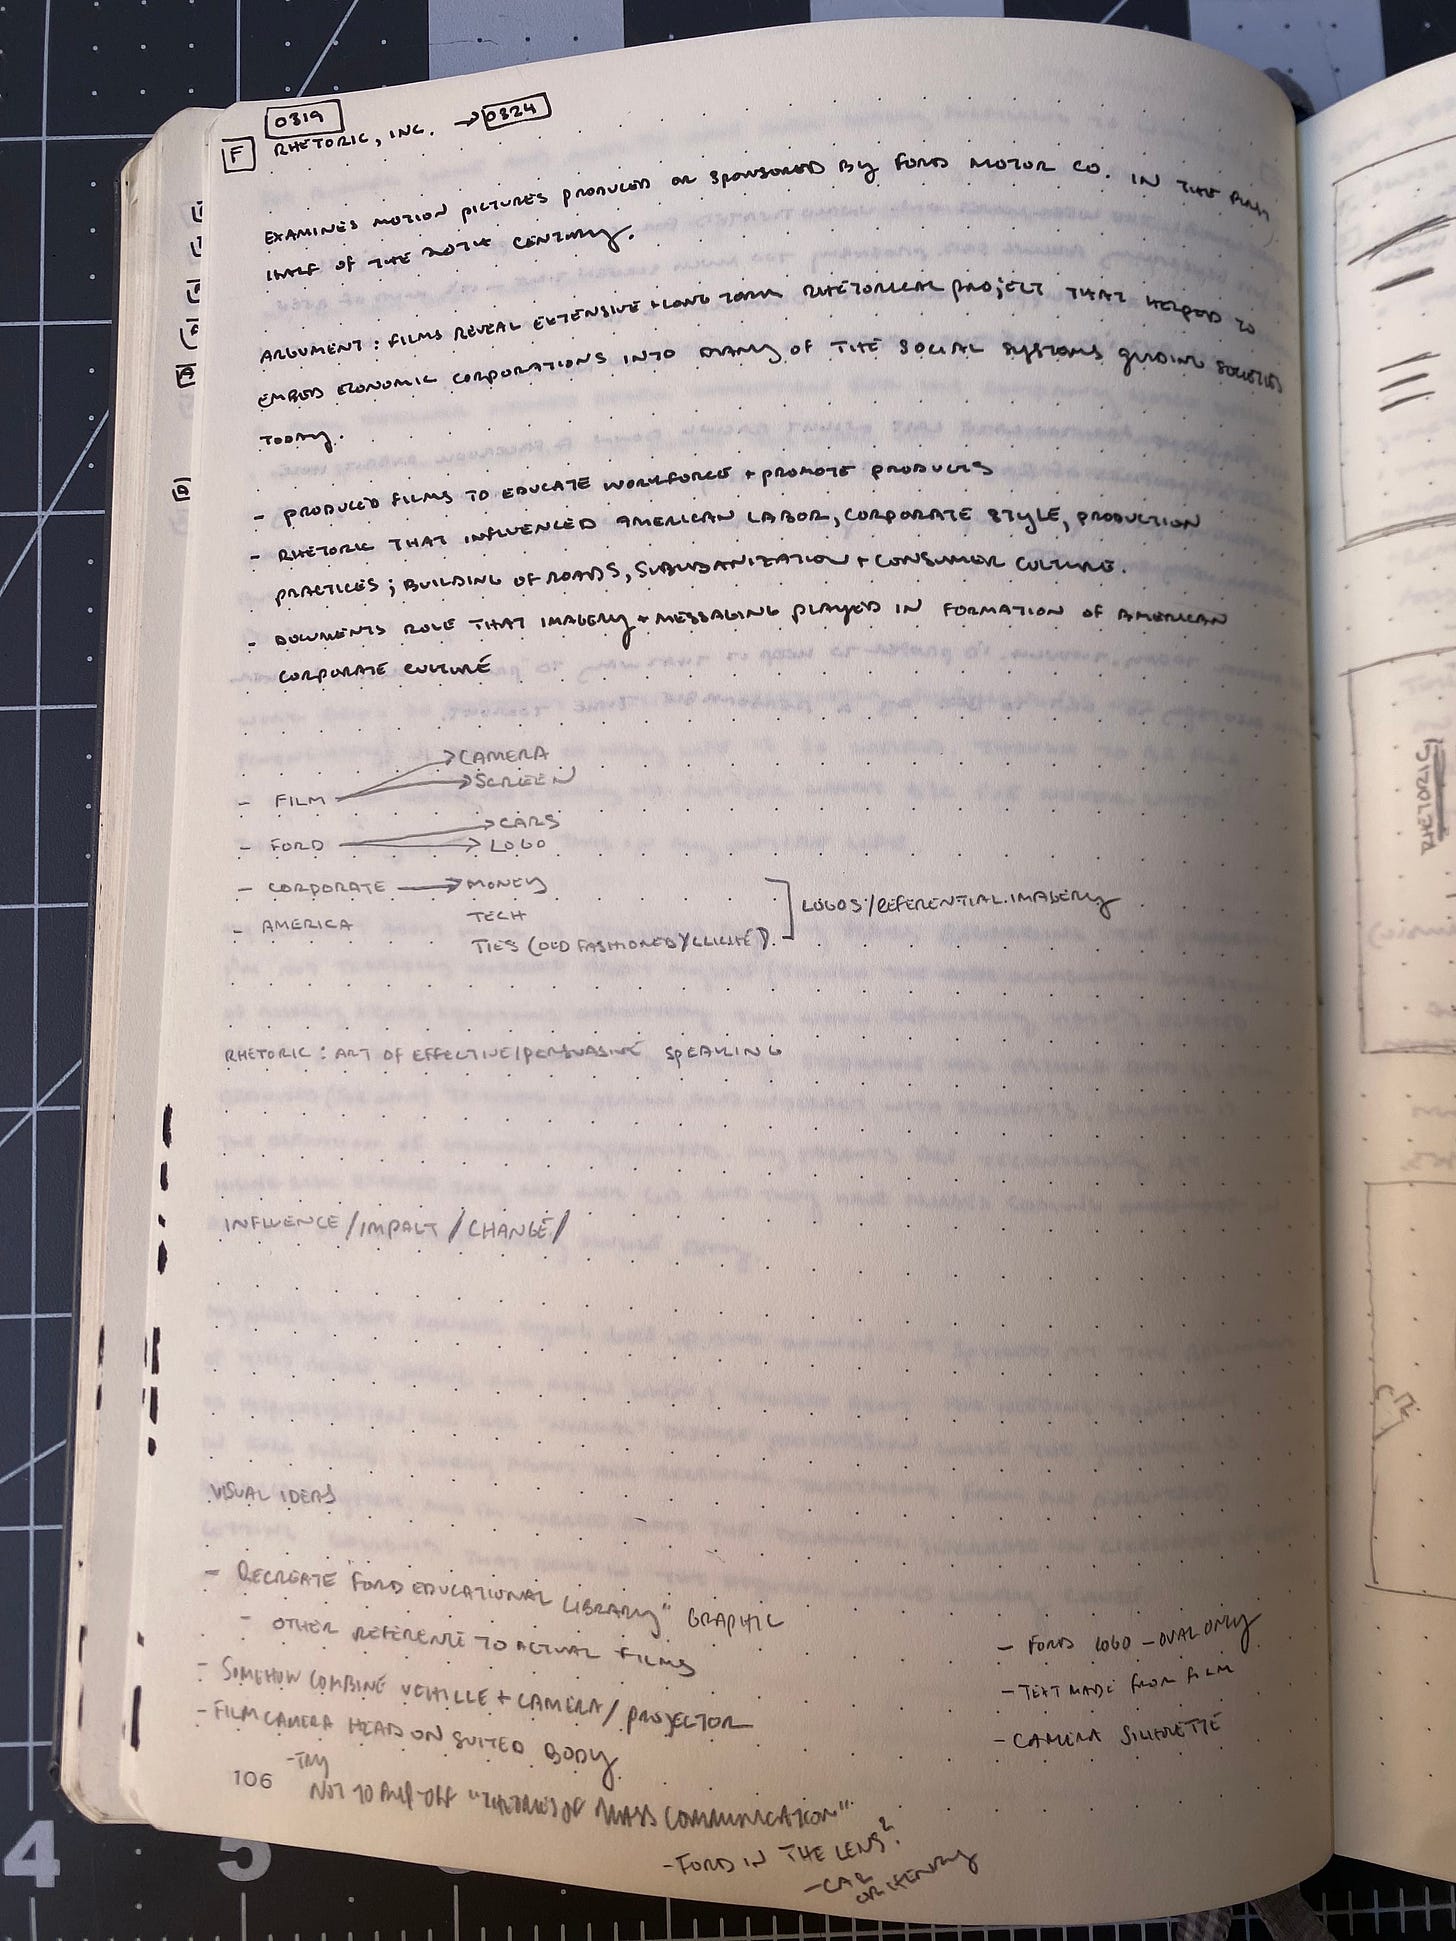 0319
F RHETORIC, INC. → 0324
EXAMINES MOTION PICTURES PRODUCED OR SPONSORED BY FORD MOTOR CO. IN THE FIRST
HALF OF THE 20TH CENTURY.
ARGUMENT: FILMS REVEAL EXTENSIVE + LONG TERM RHETORICAL PROJECT THAT HELPED TO
EMBED ECONOMIC CORPORATIONS INTO MANY OF THE SOCIAL SYSTEMS GUIDING SOCIETIES
TODAY.
- PRODUCED FILMS TO EDUCATE WORKFORCE + PROMOTE PRODUCTS
- RHETORIC THAT INFLUENCED AMERICAN LABOR, CORPORATE STYLE, PRODUCTION
PRACTICES; BUILDING OF ROADS, SUBURBANIZATION + CONSUMER CULTURE.
- DOCUMENTS ROLE THAT IMAGERY + MESSAGING PLAYED IN FORMATION OF AMERICAN
CORPORATE CULTURE
→ CAMERA
- FILM → SCREEN
→ CARS
- FORD → LOGO
- CORPORATE → MONEY
- AMERICA TECH
TIES (OLD FASHIONED/CLICHÉ)
LOGOS/REFERENTIAL IMAGERY
RHETORIC: ART OF EFFECTIVE/PERSUASIVE SPEAKING
INFLUENCE/IMPACT/CHANGE/
VISUAL IDEAS
- RECREATE "FORD EDUCATIONAL LIBRARY" GRAPHIC
- OTHER REFERENCE TO ACTUAL FILMS
- SOMEHOW COMBINE VEHICLE + CAMERA/PROJECTOR
- FILM CAMERA HEAD ON SUITED BODY
- TRY
NOT TO RIP OFF "THEORIES OF MASS COMMUNICATION"
- FORD IN THE LENS?
- CAR
OR HENRY
- FORD LOGO - OVAL ONLY
- TEXT MADE FROM FILM
- CAMERA SILHOUETTE
106
4
5